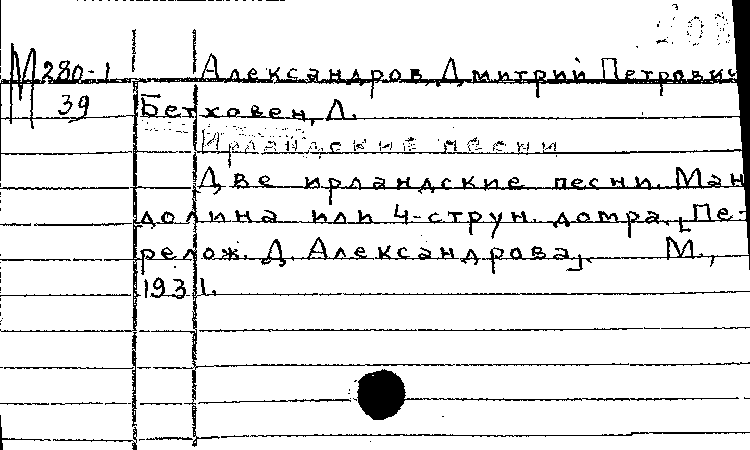 М280-1 Александров, Дмитрий Петрович
39 Бетховен, Л.
Ирландские песни
Две ирландские песни. Ман
долина или 4-струн. домра. [Пе-
релож. Д. Александрова]. М.,
1931.